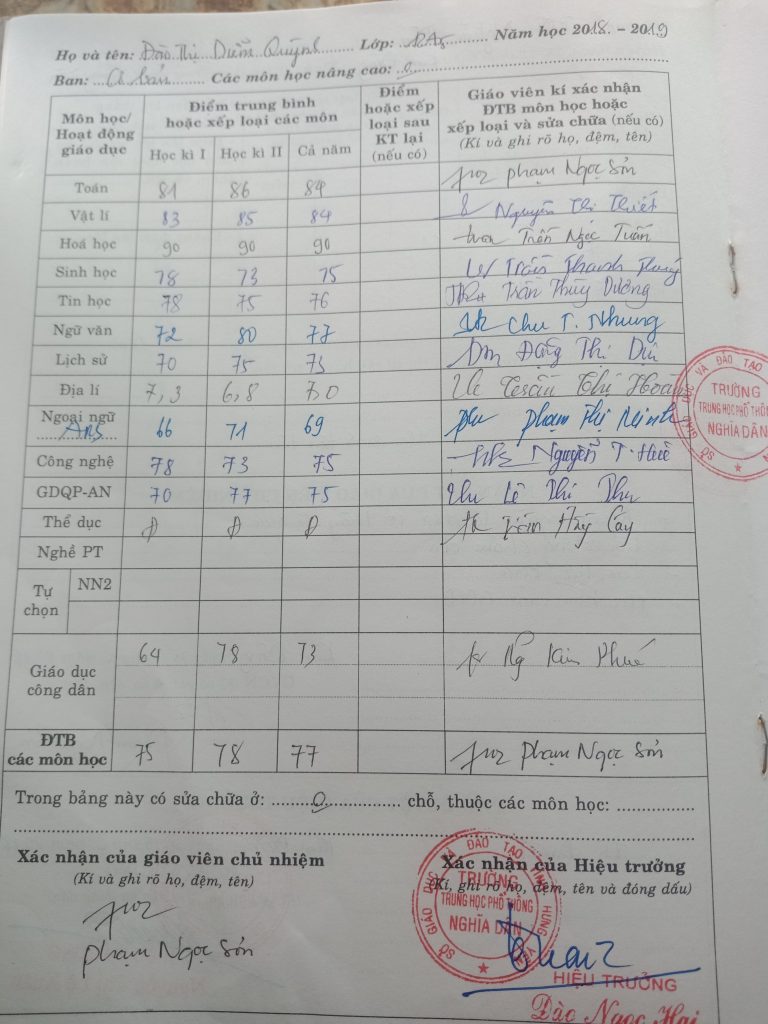 Họ và tên: Đào Thị Diễm Quỳnh Lớp: Năm học 2018 - 2019
Ban: Cơ bản Các môn học nâng cao: 0
Môn học/ Hoạt động giáo dục Điểm trung bình hoặc xếp loại các môn Điểm hoặc xếp loại sau KT lại (nếu có) Giáo viên kí xác nhận ĐTB môn học hoặc xếp loại và sửa chữa (nếu có) (Kí và ghi rõ họ, đệm, tên)
Học kì I Học kì II Cả năm
Toán 81 86 84 Phạm Ngọc Sơn
Vật lí 83 85 84 Nguyễn Thị Thiết
Hoá học 90 90 90 Trần Ngọc Tuấn
Sinh học 78 73 75 Trần Thanh
Tin học 78 75 76 Trần Thùy Dương
Ngữ văn 72 80 77 Chu T. Nhung
Lịch sử 70 75 73 Đặng Thị Dịu
Địa lí 7,3 6,8 7,0 Thị
Ngoại ngữ 66 71 69 Phạm Thị Minh
Công nghệ 78 73 75 Nguyễn T. Huê
GDQP-AN 70 77 75 Lê Thị Thu
Thể dục Đ Đ Đ
Nghề PT
Tự chọn NN2
Giáo dục công dân 64 78 73 Ng Kim Phuế
ĐTB các môn học 75 78 77 Phạm Ngọc Sơn
Trong bảng này có sửa chữa ở: 0 chỗ, thuộc các môn học:
Xác nhận của giáo viên chủ nhiệm
(Kí và ghi rõ họ, đệm, tên)
Phạm Ngọc Sơn
Xác nhận của Hiệu trưởng
(Kí, ghi rõ họ, đệm, tên và đóng dấu)
HIỆU TRƯỞNG
Đào Ngọc Hải
SỞ GIÁO DỤC VÀ ĐÀO TẠO TỈNH HƯNG YÊN
TRƯỜNG
TRUNG HỌC PHỔ THÔNG
NGHĨA DÂN
SỞ GIÁO DỤC VÀ ĐÀO TẠO
TRƯỜNG
TRUNG HỌC PHỔ THÔNG
NGHĨA DÂN